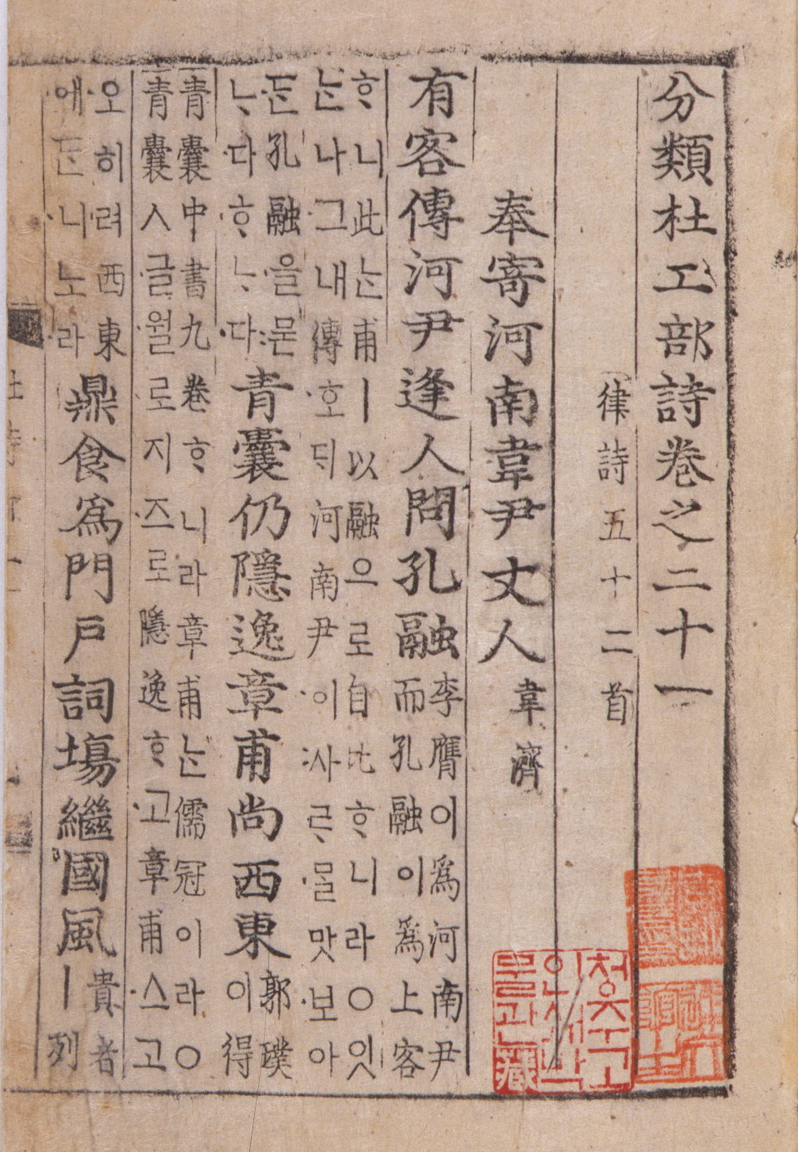 分類杜工部詩卷之二十一
律詩五十二首
奉寄河南韋尹丈人 韋濟
有客傳河尹逢人問孔融
李膺이爲河南尹
而孔融이爲上客
ᄒᆞ니此ᄂᆞᆫ甫ㅣ以融으로自比ᄒᆞ니라○잇
ᄂᆞᆫ나그내傳호ᄃᆡ河南尹이사ᄅᆞᄆᆞᆯ맛보아
ᄃᆞᆫ孔融을묻
ᄂᆞ다ᄒᆞᄂᆞ다
青囊仍隱逸章甫尚西東
郭璞
이得
青囊中書九卷ᄒᆞ니라章甫ᄂᆞᆫ儒冠이라○
青囊ㅅ글월로지즈로隱逸ᄒᆞ고章甫스고
오히려西東
에ᄃᆞᆫ니노라
鼎食爲門戶詞塲繼國風
貴者
ㅣ列
청주고
인쇄박
물관藏